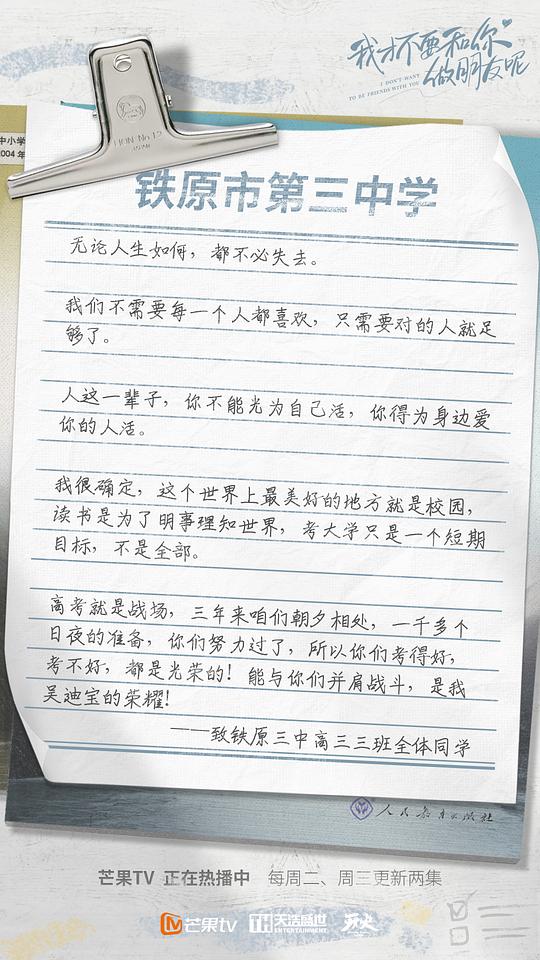 我才不要和你
做朋友呢
I DON'T WANT
TO BE FRIENDS WITH YOU
中小学
2004年
HON No.12
铁原市第三中学
无论人生如何，都不必失去。
我们不需要每一个人都喜欢，只需要对的人就足
够了。
人这一辈子，你不能光为自己活，你得为身边爱
你的人活。
我很确定，这个世界上最美好的地方就是校园，
读书是为了明事理知世界，考大学只是一个短期
目标，不是全部。
高考就是战场，三年来咱们朝夕相处，一千多个
日夜的准备，你们努力过了，所以你们考得好，
考不好，都是光荣的！能与你们并肩战斗，是我
吴迪宝的荣耀！
——致铁原三中高三三班全体同学
人民教育出版社
芒果TV 正在热播中 每周二、周三更新两集
芒果tv 天浩盛世
ENTERTAINMENT